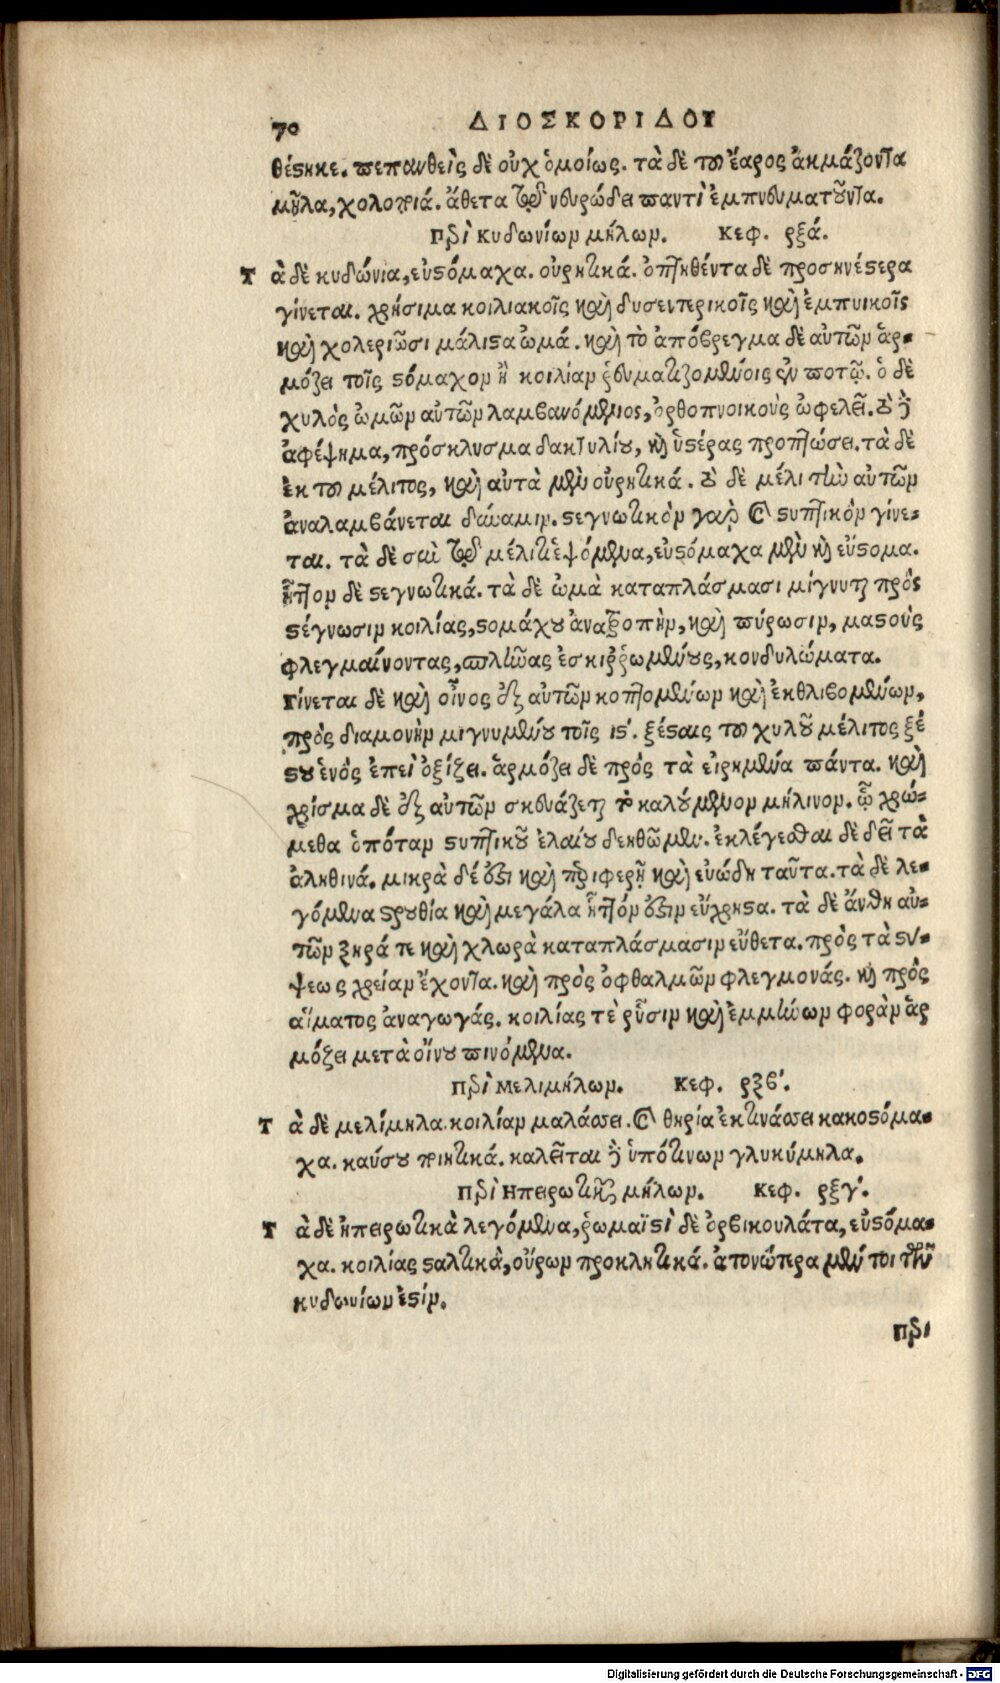 70 ΔΙΟΣΚΟΡΙΔΟΥ
θέστηκε. πεπανθεὶς δὲ οὐχ ὁμοίως. τὰ δὲ τοῦ ἔαρος ἀκμάζοντα
μῆλα, χολοποιά. ἄθετα τῷ νευρώδει παντὶ ἐμπνευματοῦντα.
Περὶ κυδωνίων μήλων. Κεφ. ρξά.
Τὰ δὲ κυδώνια, εὐστόμαχα. οὐρητικά. ὀπτηθέντα δὲ προσηνέστερα
γίνεται. χρήσιμα κοιλιακοῖς καὶ δυσεντερικοῖς καὶ ἐμπυικοῖς
καὶ χολεριῶσι μάλιστα ὠμά. καὶ τὸ ἀπόβρεγμα δὲ αὐτῶν ἁρ-
μόζει τοῖς στόμαχον ἢ κοιλίαν ῥευματιζομένοις ἐν ποτῷ. ὁ δὲ
χυλὸς ὠμῶν αὐτῶν λαμβανόμενος, ὀρθοπνοικοὺς ὠφελεῖ. τὸ δὲ
ἀφέψημα, πρόσκλυσμα δακτυλίου, καὶ ὑστέρας προπτώσει. τὰ δὲ
ἐκ τοῦ μέλιτος, καὶ αὐτὰ μὲν οὐρητικά. τὸ δὲ μέλι τὴν αὐτῶν
ἀναλαμβάνεται δύναμιν. στεγνωτικὸν γὰρ καὶ στυπτικὸν γίνε-
ται. τὰ δὲ σὺν τῷ μέλιτι ἑψόμενα, εὐστόμαχα μὲν καὶ εὔστομα.
ἧττον δὲ στεγνωτικά. τὰ δὲ ὠμὰ καταπλάσμασι μίγνυται πρὸς
στέγνωσιν κοιλίας, στομάχου ἀνατροπὴν, καὶ πύρωσιν, μαστοὺς
φλεγμαίνοντας, σπλῆνας ἐσκιρρωμένους, κονδυλώματα.
Γίνεται δὲ καὶ οἶνος ἐξ αὐτῶν κοπτομένων καὶ ἐκθλιβομένων,
πρὸς διαμονὴν μιγνυμένου τοῖς ις. ξέσταις τοῦ χυλοῦ μέλιτος ξέ
στου ἑνὸς ἐπεὶ ὀξίζει. ἁρμόζει δὲ πρὸς τὰ εἰρημένα πάντα. καὶ
χρίσμα δὲ ἐξ αὐτῶν σκευάζεται τὸ καλούμενον μήλινον. ᾧ χρώ-
μεθα ὁπόταν στυπτικοῦ ἐλαίου δεηθῶμεν. ἐκλέγεσθαι δὲ δεῖ τὰ
ἀληθινά. μικρὰ δέ ἐστι καὶ περιφερῆ καὶ εὐώδη ταῦτα. τὰ δὲ λε-
γόμενα στρουθία καὶ μεγάλα ἧττόν ἐστιν εὔχρηστα. τὰ δὲ ἄνθη αὐ-
τῶν ξηρά τε καὶ χλωρὰ καταπλάσμασιν εὔθετα. πρὸς τὰ στύ-
ψεως χρείαν ἔχοντα. καὶ πρὸς ὀφθαλμῶν φλεγμονάς. καὶ πρὸς
αἵματος ἀναγωγάς. κοιλίας τὲ ῥῦσιν καὶ ἐμμήνων φορὰν ἁρ
μόζει μετὰ οἴνου πινόμενα.
Περὶ μελιμήλων. Κεφ. ρξβ.
Τὰ δὲ μελίμηλα. κοιλίαν μαλάσσει. καὶ θηρία ἐκτινάσσει κακοστόμα-
χα. καύσου ποιητικά. καλεῖται δὲ ὑπό τινων γλυκύμηλα.
Περὶ Ηπειρωτικῶν μήλων. Κεφ. ρξγ.
Τὰ δὲ ἠπειρωτικὰ λεγόμενα, ῥωμαϊστὶ δὲ ὀρβικουλάτα, εὐστόμα-
χα. κοιλίας σταλτικὰ, οὔρων προκλητικά. ἀτονώτερα μέν τοι τῶν
κυδωνίων ἐστίν.
Περὶ
Digitalisierung gefördert durch die Deutsche Forschungsgemeinschaft - DFG